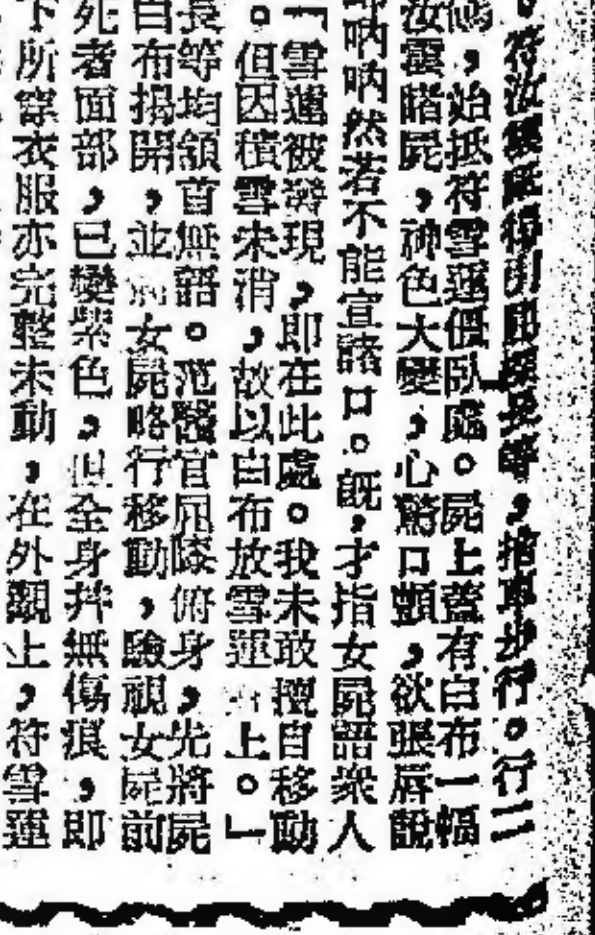 符汝
，始抵符雪蓮僵臥處。屍上蓋有白布一幅
汝雲睹屍，神色大變，心驚口顫，欲張唇說
吶吶然若不能宣諸口。旣，才指女屍語衆人
「雪蓮被發現，即在此處。我未敢擅自移動
。但因積雪未消，故以白布放雪蓮 上。」
長等均頷首無語。范醫官屈膝俯身，先將屍
白布揭開，並 女屍略行移動，驗視女屍前
死者面部，已變紫色，但全身幷無傷痕，即
下所穿衣服亦完整未動，在外觀上，符雪蓮